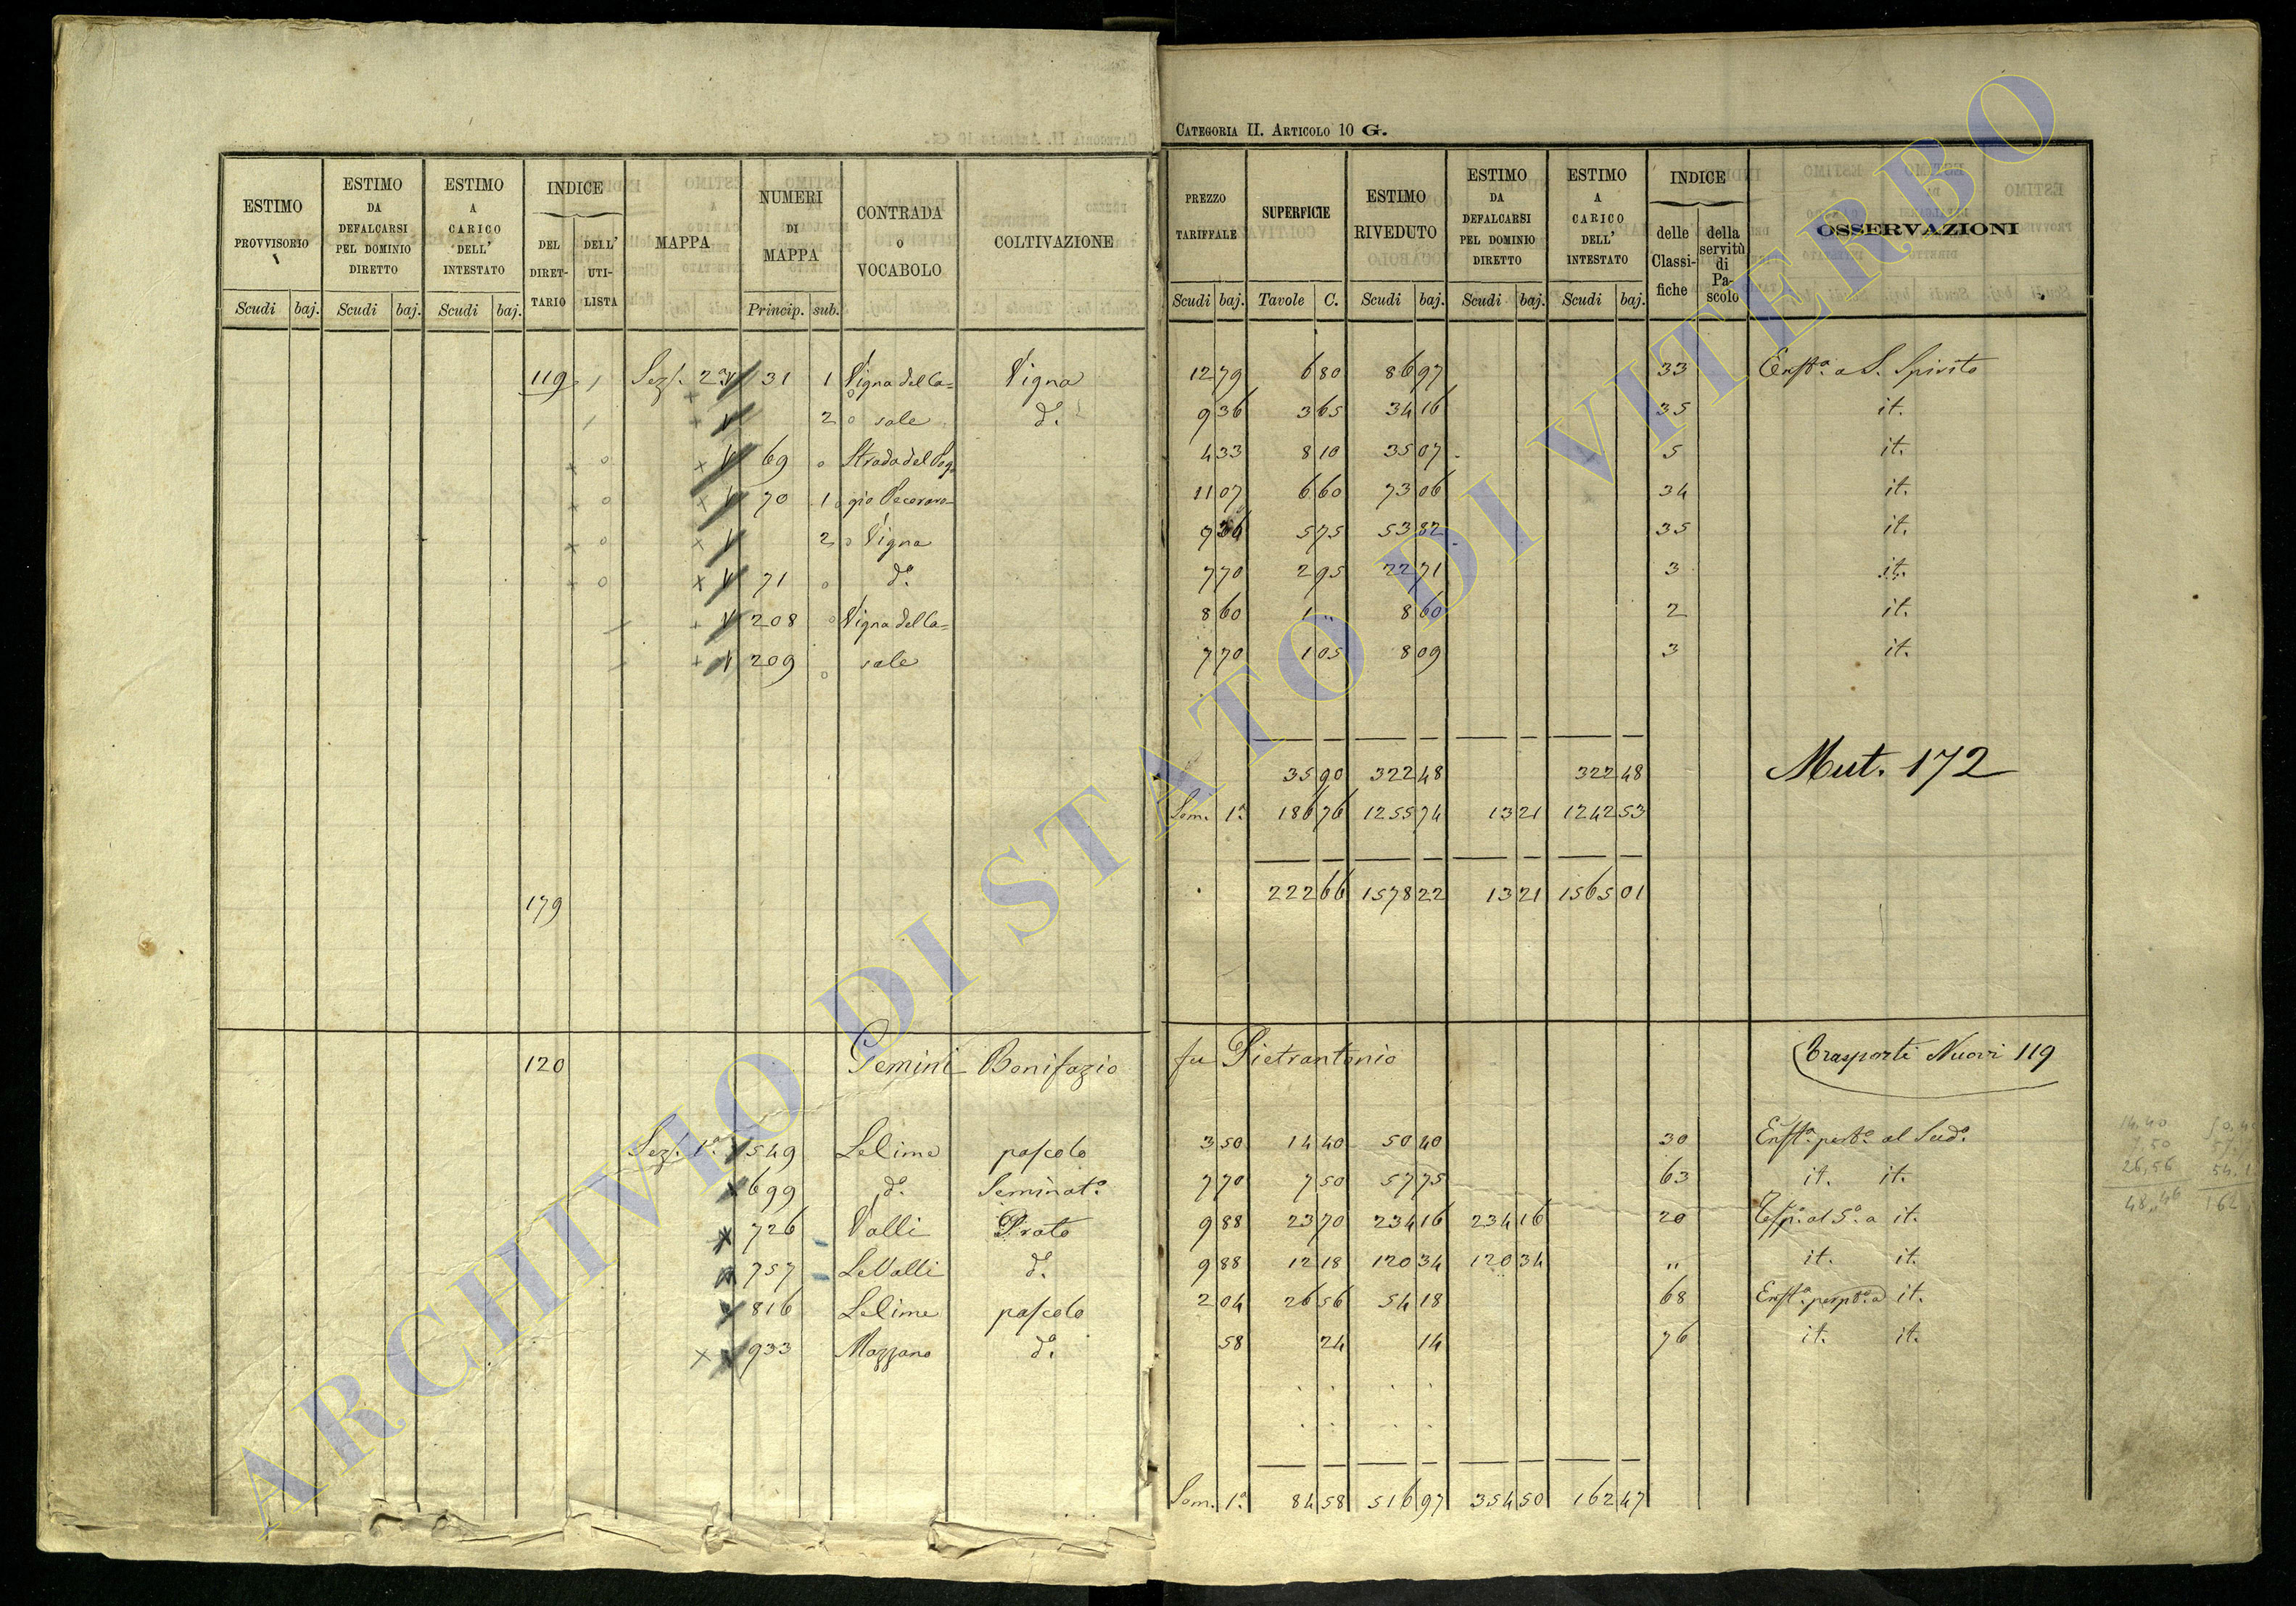 CATEGORIA II. ARTICOLO 10 G.
ESTIMO PROVVISORIO Scudi baj. | ESTIMO DA DEFALCARSI PEL DOMINIO DIRETTO Scudi baj. | ESTIMO A CARICO DELL' INTESTATO Scudi baj. | INDICE DEL DIRETTARIO DELL' UTILISTA | MAPPA | NUMERI DI MAPPA Princip. sub. | CONTRADA O VOCABOLO | COLTIVAZIONE | PREZZO TARIFFALE Scudi baj. | SUPERFICIE Tavole C. | ESTIMO RIVEDUTO Scudi baj. | ESTIMO DA DEFALCARSI PEL DOMINIO DIRETTO Scudi baj. | ESTIMO A CARICO DELL' INTESTATO Scudi baj. | INDICE delle Classifiche della servitù di Pascolo | OSSERVAZIONI
119 Sez. 2a 31 1 Vigna del Ca= Vigna 12 79 6 80 86 97 33 Enfta. a S. Spirito
2 sale do. 9 36 3 65 34 16 35 it.
69 Strada del Pog 4 33 8 10 35 07 5 it.
70 1 gio Pecoraro 11 07 6 60 73 06 34 it.
2 Vigna 9 36 5 75 53 82 35 it.
71 do. 7 70 2 95 22 71 3 it.
208 Vigna del Ca= 8 60 1 „ 8 60 2 it.
209 sale 7 70 1 05 8 09 3 it.
35 90 322 48 322 48 Mut. 172
Som. 1a. 186 76 1255 74 13 21 1242 53
179 222 66 1578 22 13 21 1565 01
120 Gemini Bonifazio fu Pietrantonio Trasporti Nuovi 119
Sez. 1a. 549 Le Lime pascolo 3 50 14 40 50 40 30 Enfta. perpa. al Sudo.
699 do. Seminato. 7 70 7 50 57 75 63 it. it.
726 Valli Prato 9 88 23 70 234 16 234 16 20 al 5o. a it.
757 Le Valli do. 9 88 12 18 120 34 120 34 „ it. it.
816 Le Lime pascolo 2 04 26 56 54 18 68 Enfta. perpta. a it.
933 Mazzano do. 58 24 14 76 it. it.
Som. 1a. 84 58 516 97 354 50 162 47
14.40
7.50
26,56
48,46
162
ARCHIVIO DI STATO DI VITERBO